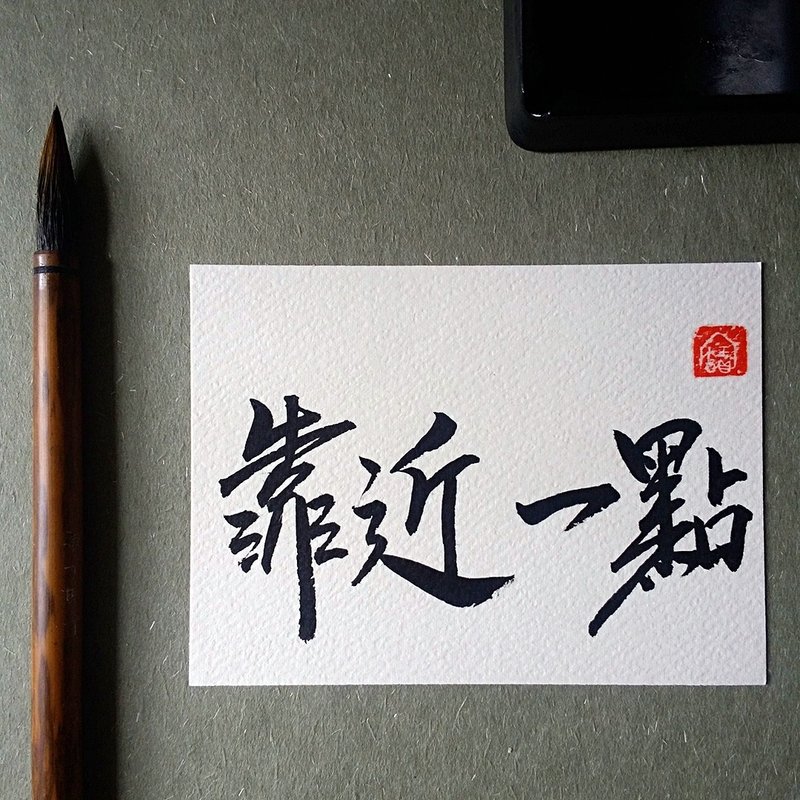 靠近一點